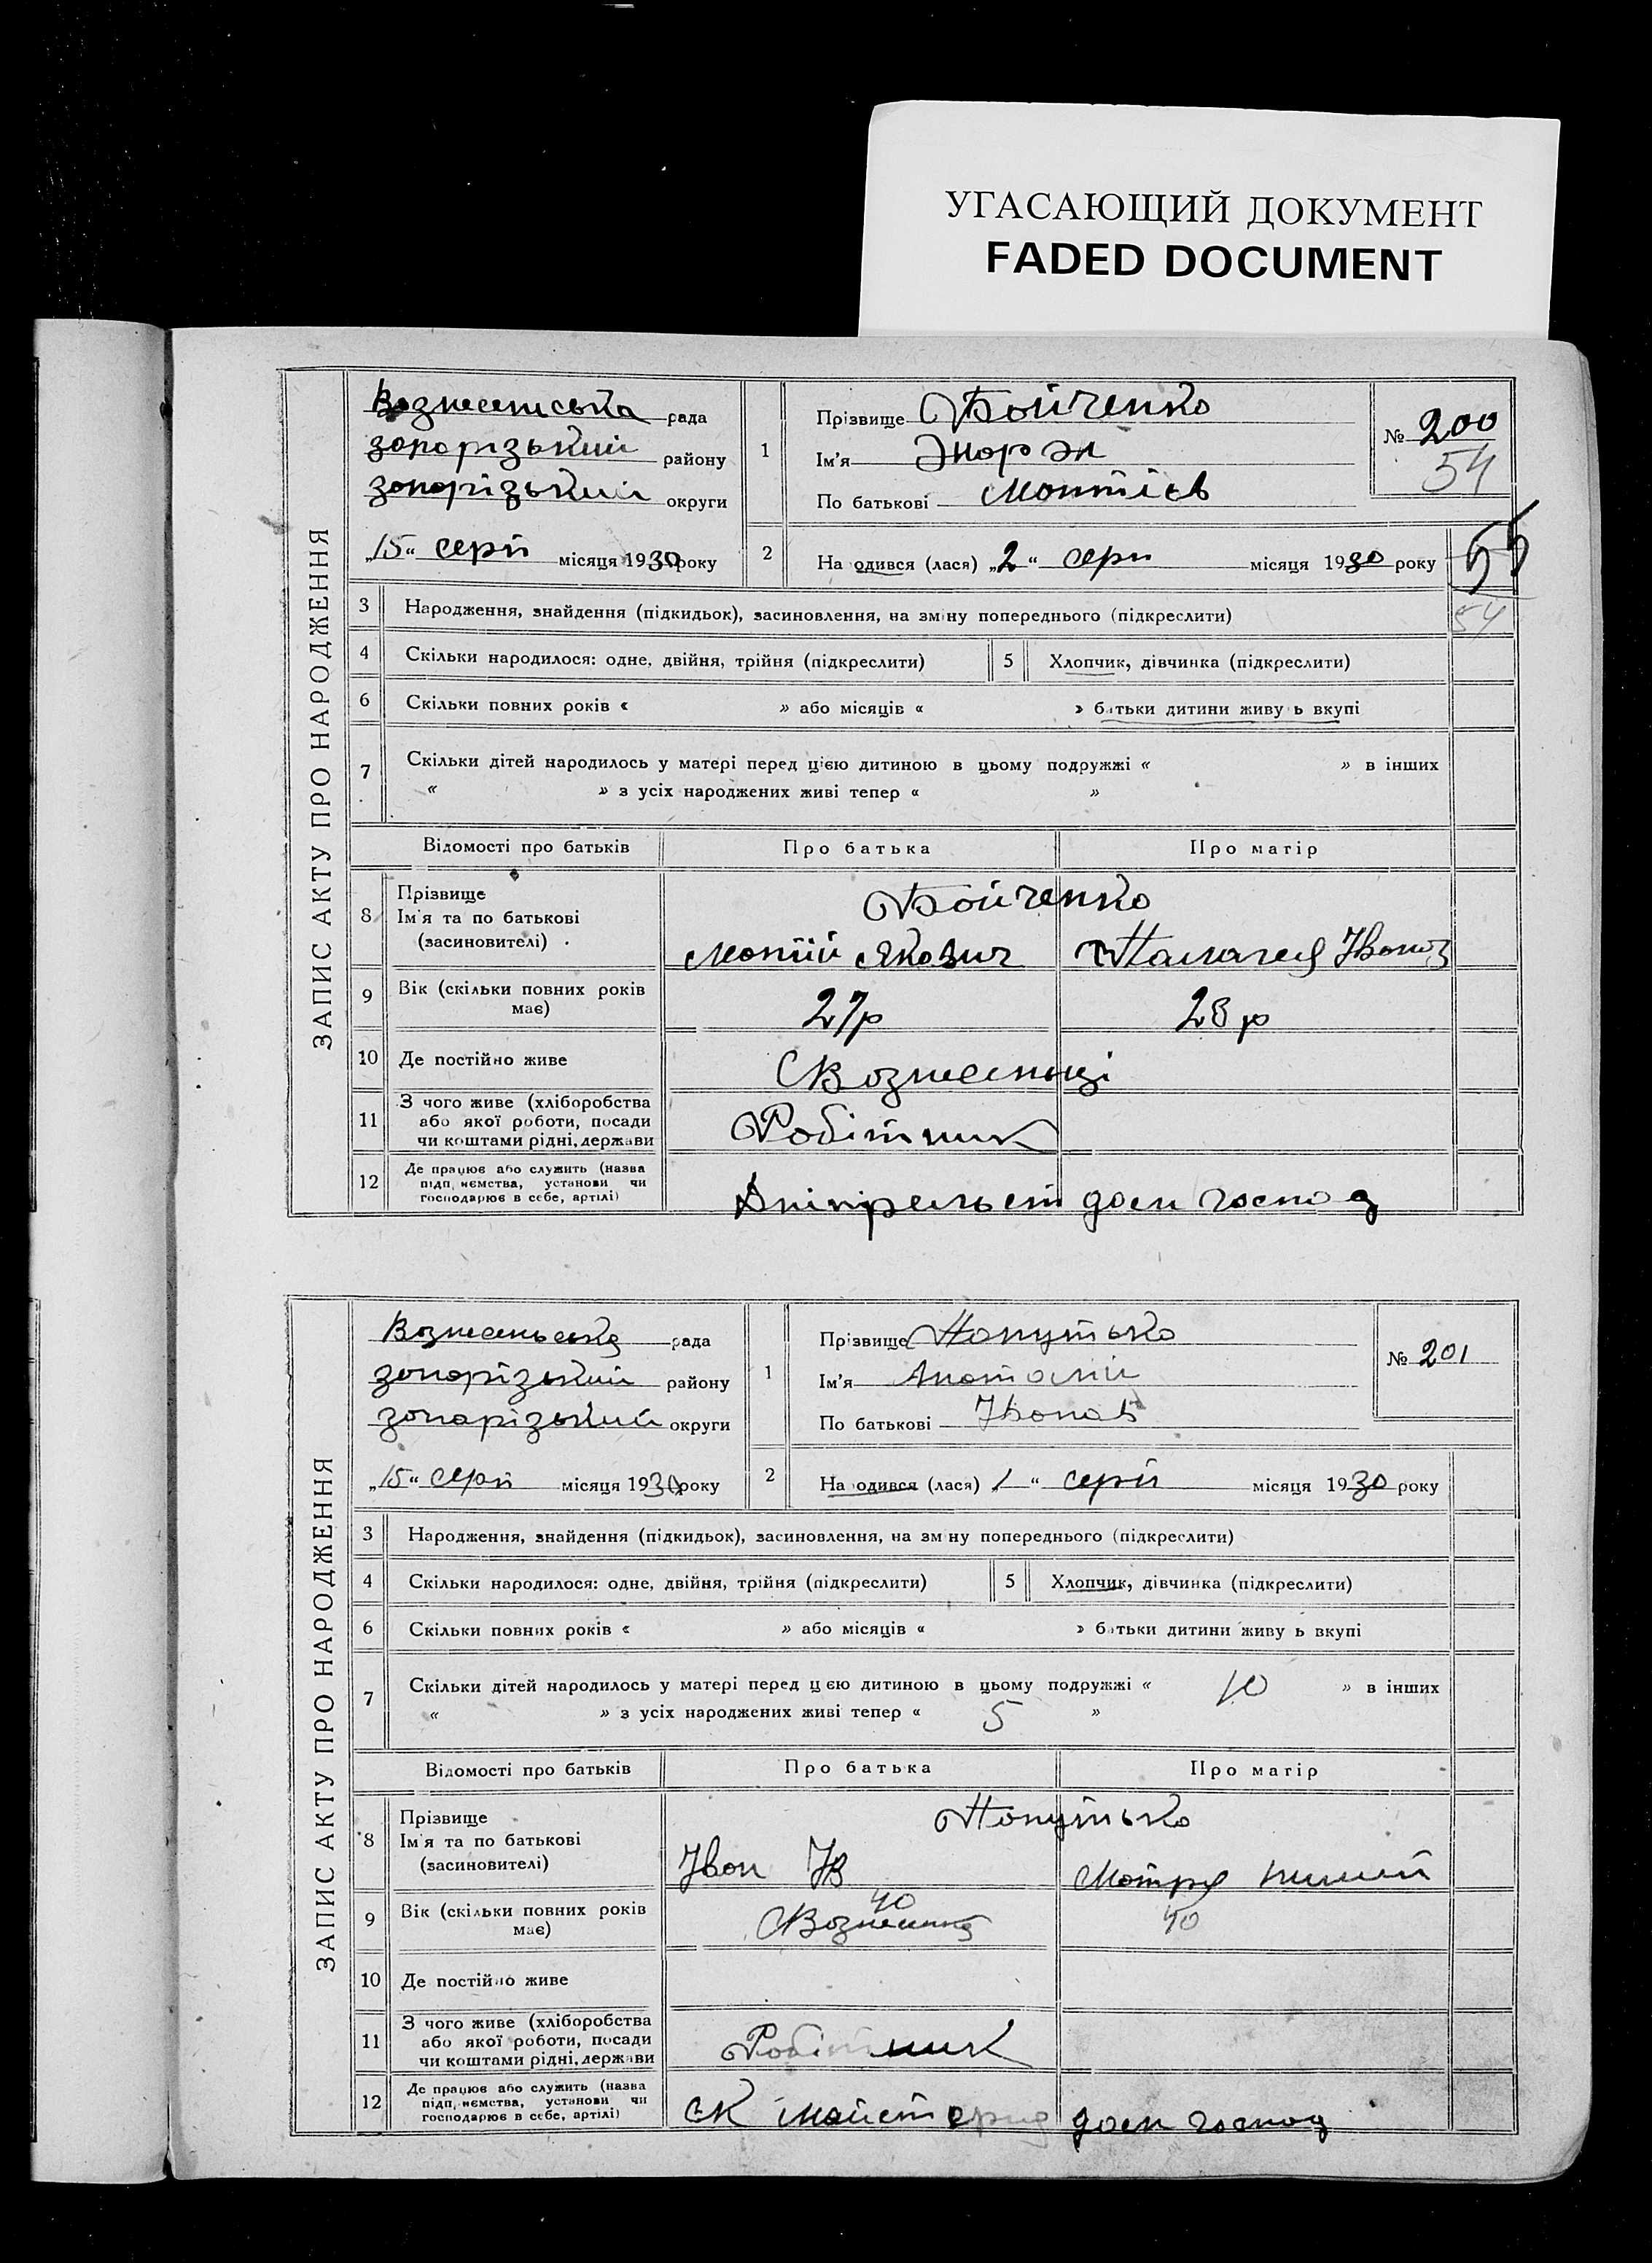 УГАСАЮЩИЙ ДОКУМЕНТ
FADED DOCUMENT
ЗАПИС АКТУ ПРО НАРОДЖЕННЯ
Вознесенська рада
запорізький району
запорізький округи
„15“ серп місяця 1930 року
1
Прізвище Бойченко
Ім'я
По батькові
№ 200
54
2 На одився (лася) „2“ серп місяця 1930 року
55
54
3 Народження, знайдення (підкидьок), засиновлення, на зм ну попереднього (підкреслити)
4 Скільки народилося: одне, двійня, трійня (підкреслити) 5 Хлопчик, дівчинка (підкреслити)
6 Скільки повних років « » або місяців « » батьки дитини живу ь вкупі
7 Скільки дітей народилось у матері перед цією дитиною в цьому подружжі « » в інших
« » з усіх народжених живі тепер « »
Відомості про батьків Про батька Про матір
8 Прізвище
Ім'я та по батькові
(засиновителі)
Бойченко
Якович
Іванов
9 Вік (скільки повних років має) 27р 28р
10 Де постійно живе Вознесенці
11 З чого живе (хліборобства
або якої роботи, посади
чи коштами рідні, держави
Робітник
12 Де працює або служить (назва
підп, иємства, установи чи
господарює в себе, артілі)
дом господ
ЗАПИС АКТУ ПРО НАРОДЖЕННЯ
Вознесенська рада
запорізький району
запорізький округи
„15“ серп місяця 1930 року
1
Прізвище Попутько
Ім'я Анатолій
По батькові Іванов
№ 201
2 На одився (лася) „1“ серп місяця 1930 року
3 Народження, знайдення (підкидьок), засиновлення, на зм ну попереднього (підкреслити)
4 Скільки народилося: одне, двійня, трійня (підкреслити) 5 Хлопчик, дівчинка (підкреслити)
6 Скільки повних років « » або місяців « » батьки дитини живу ь вкупі
7 Скільки дітей народилось у матері перед ц єю дитиною в цьому подружжі « 10 » в інших
« » з усіх народжених живі тепер « 5 »
Відомості про батьків Про батька Про матір
8 Прізвище
Ім'я та по батькові
(засиновителі)
Попутько
Іван Ів
Мотря
9 Вік (скільки повних років має) 40 40
10 Де постійно живе
11 З чого живе (хліборобства
або якої роботи, посади
чи коштами рідні, держави
Робітник
12 Де працює або служить (назва
підп, иємства, установи чи
господарює в себе, артілі)
майстерня дом господ